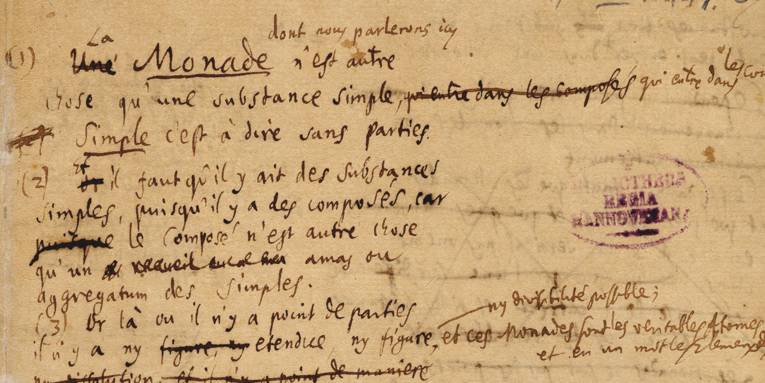 La dont nous parlerons icy
(1) Une Monade n'est autre
chose qu'une substance simple, qui entre dans les composés qui entre dans les com
Simple c'est à dire sans parties.
(2) Et il faut qu'il y ait des substances
simples, puisqu'il y a des composés, car
puisque le Composé n'est autre chose
qu'un recueil amas ou
aggregatum des simples.
(3) Or là ou il n'y a point de parties
ny divisibilité possible;
il n'y a ny figure, ny etendue ny figure, et ces Monades sont les veritables Atomes
et en un mot les Elemens
ny dissolution, et il n'y a point de maniere
BIBLIOTHECA
REGIA
HANNOVERANA